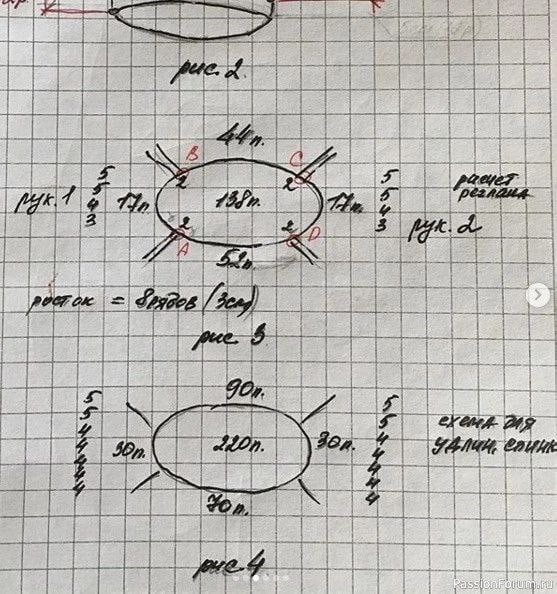 рис. 2.
44п.
B
C
2
2
5
5
4
3
рук. 1
17п.
138п.
17п.
5
5
4
3
рук. 2
расчет
реглана
2
2
A
D
52п.
росток = 8 рядов (3см)
рис 3
90п.
5
5
4
4
4
4
4
30п.
220п.
30п.
5
5
4
4
4
4
4
схема для
удлин. спинк
70п.
рис 4
PassionForum.ru